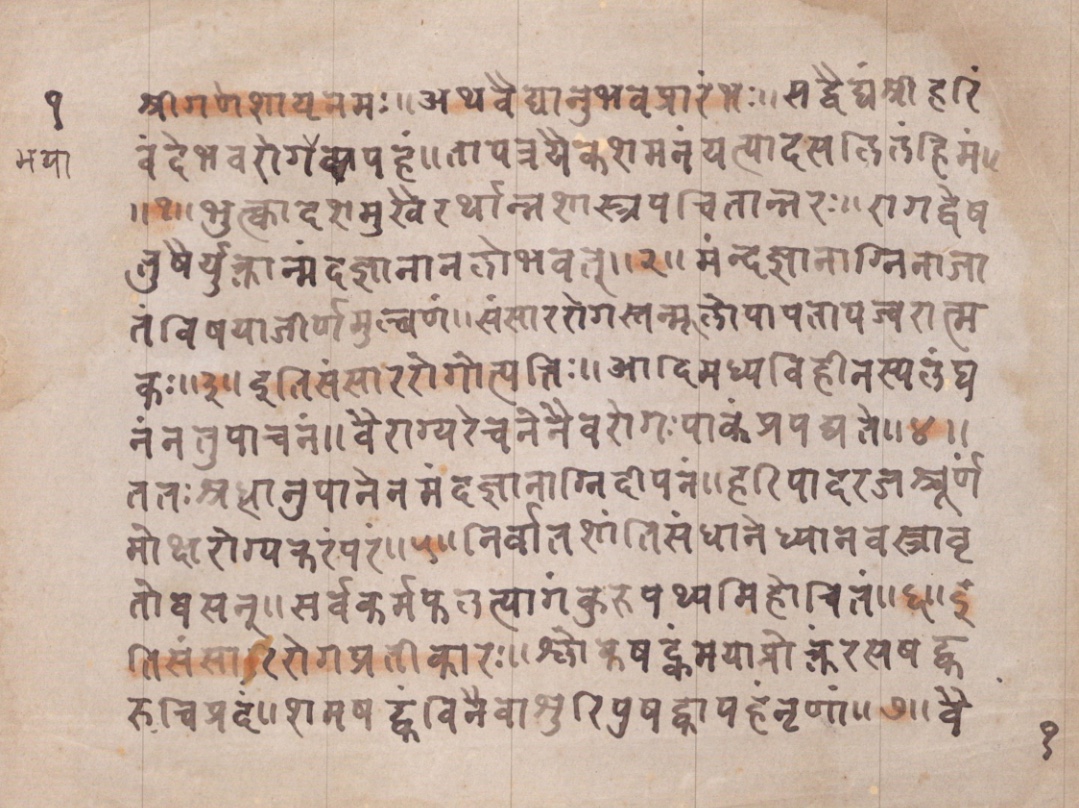 १
भया
श्रीगणेशायनमः॥अथवैद्यानुभवप्रारंभः॥सद्वैद्यंश्रीहरिं
वंदेभवरोगैकापहं॥तापत्रयैकशमनंयत्पादसलिलंहिमं॥
॥१॥भुत्क्वादशमुखैरर्थान्नशास्त्रपचितान्नरः॥रागद्वेष
तुषैर्युक्तान्मंदज्ञानानलोभवत्॥२॥मंन्दज्ञानाग्निनाजा
तंविषयाजीर्णमुल्बणं॥संसाररोगस्तन्मूलोपापतापज्वरात्म
कः॥३॥इतिसंसाररोगोत्पत्तिः॥आदिमध्यविहीनस्यलंघ
नंनतुपाचनं॥वैराग्यरेचनेनैवरोगःपाकंप्रपद्यते॥४॥
ततःश्रधानुपानेनमंदज्ञानाग्निदीपनं॥हरिपादरजश्चूर्णं
मोक्षारोग्यकरंपरं॥५॥निर्वातशांतिसंधानेध्यानवस्त्रावृ
तोवसन्॥सर्वकर्मफलत्यागंकुरुपथ्यमिहोचितं॥६॥इ
तिसंसारिरोगप्रतीकारः॥श्लोकषट्कंमयाप्रोक्तंरसषट्क
रुचिप्रदं॥शमषट्कंविनैवाशुरिपुषट्कापहंनृणां॥७॥वै
१